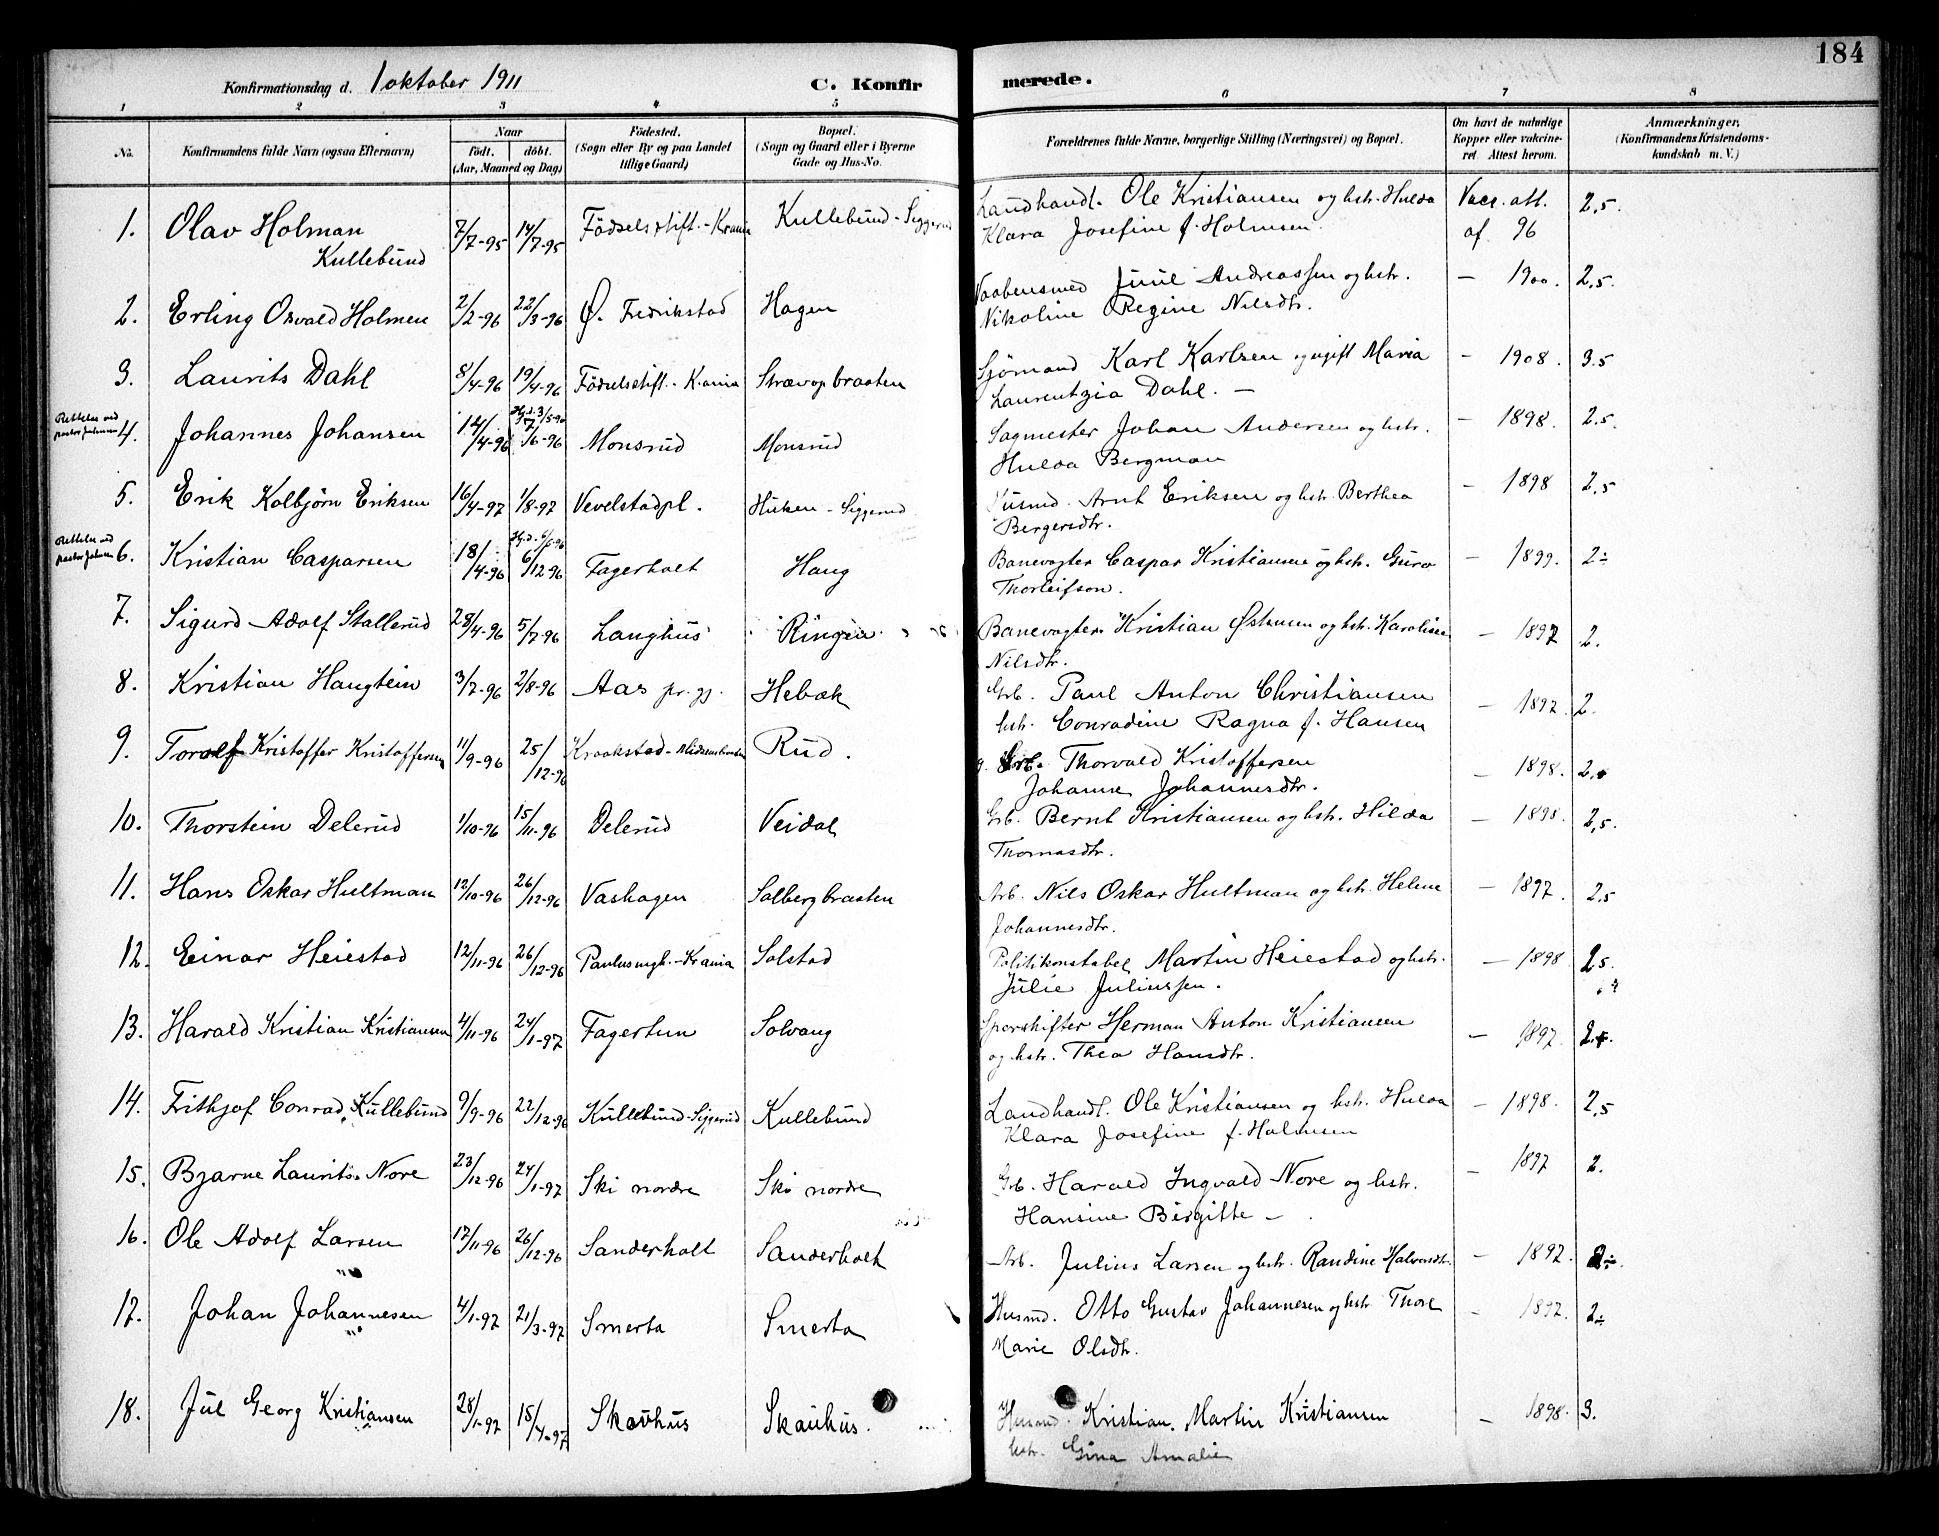 184
Konfirmationsdag d. 1 oktober 1911
C. Konfirmerede.
1 2 3 4 5 6 7 8
No.
Konfirmandens fulde Navn (ogsaa Efternavn)
Naar
födt. döbt.
(Aar, Maaned og Dag)
Födested.
(Sogn eller By og paa Landet
tillige Gaard)
Bopæl.
(Sogn og Gaard eller i Byerne
Gade og Hus-No.
Forældrenes fulde Navne, borgerlige Stilling (Næringsvei) og Bopæl.
Om havt de naturlige
Kopper eller vakcine-
ret. Attest herom.
Anmærkninger,
(Konfirmandens Kristendoms-
kundskab m. V.)
1. Olav Holman 7/7-95 14/7-95 Födselsstift.-Krania Kullebund-Siggerud Landhandl. Ole Kristiansen og hstr. Hulda Vacc. att. 2,5.
Kullebund Klara Josefine f. Holmsen. af 96
2. Erling Osvald Holmen 2/2-96 22/3-96 Ø. Fredrikstad Hagen Vaabensmed Juul Andreassen og hstr. — 1900. 2,5.
Nikoline Regine Nilsdtr.
3. Laurits Dahl 8/4-96 19/4-96 Födselsstift.-Krania Strævopbraaten Sjömand Karl Karlsen og ugift Maria — 1908. 3.5
Laurentzia Dahl. —
Rettelse ved
pastor Johnsen
4. Johannes Johansen 14/4-96 Hjd. 3/5-96 7/6-96 Monsrud Monsrud Sagmester Johan Andersen og hstr. — 1898. 2.5.
Hulda Bergman
5. Erik Kolbjørn Eriksen 16/4-97 1/8-97 Vevelstadpl. Huken-Siggerud Husmd. Arnt Eriksen og hstr. Berthea — 1898 2,5
Bergersdtr.
Rettelse ved
pastor Johnsen
6. Kristian Casparsen 18/4-96 6/12-96 Fagerholt Haug Banevogter Caspar Kristiansen og hstr. Guro — 1899. 2÷
Thorleifson.
7. Sigurd Adolf Stallerud 28/4-96 5/7-96 Langhus Ringen Banevogter Kristian Østensen og hstr. Karoline — 1897 2.
Nilsdtr.
8. Kristian Haugtein 3/7-96 2/8-96 Aas pr. gj. Hebæk Grb. Paul Anton Christiansen — 1897. 2.
hstr. Conradine Ragna f. Hansen
9. Toralf Kristoffer Kristoffersen 11/9-96 25/12-96 Kraakstad- Rud. Grb. Thorvald Kristoffersen — 1898. 2.+
Johanne Johannesdtr.
10. Thorstein Delerud 1/10-96 15/11-96 Delerud Veidal Grb. Bernt Kristiansen og hstr. Hilda — 1898. 2,5.
Thomasdtr.
11. Hans Oskar Hultman 12/10-96 26/12-96 Vashagen Solbergbraaten Arb. Nils Oskar Hultman og hstr. Helene — 1897. 2.5
Johannesdtr.
12. Einar Heiestad 12/11-96 26/12-96 Paulusmgh.-Krania Solstad Politikonstabel Martin Heiestad og hstr. — 1898 2.5.
Julie Juliussen.
13. Harald Kristian Kristiansen 4/11-96 24/1-97 Fagertun Solvang Sporskifter Herman Anton Kristiansen — 1897. 2+.
og hstr. Thea Hansdtr.
14. Frithjof Conrad Kullebund 9/9-96 22/12-96 Kullebund-Siggerud Kullebund Landhandl. Ole Kristiansen og hstr. Hulda — 1898. 2,5
Klara Josefine f. Holmsen
15. Bjarne Laurits Nore 23/12-96 24/1-97 Ski nordre Ski nordre Grb. Harald Ingvald Nore og hstr. — 1897 2.
Hansine Birgitte —
16. Ole Adolf Larsen 17/11-96 26/12-96 Sanderholt Sanderholt Arb. Julius Larsen og hstr. Randine Halvorsdtr. — 1897. 2÷
17. Johan Johannesen 4/1-97 21/3-97 Smerta Smerta Husmd. Otto Gustav Johannesen og hstr. Thore — 1897. 2÷
Marie Olsdtr.
18. Jul Georg Kristiansen 28/1-97 18/4-97 Skauhus Skauhus. Husmd. Kristian Martin Kristiansen — 1898. 3.
hstr. Gina Amalie